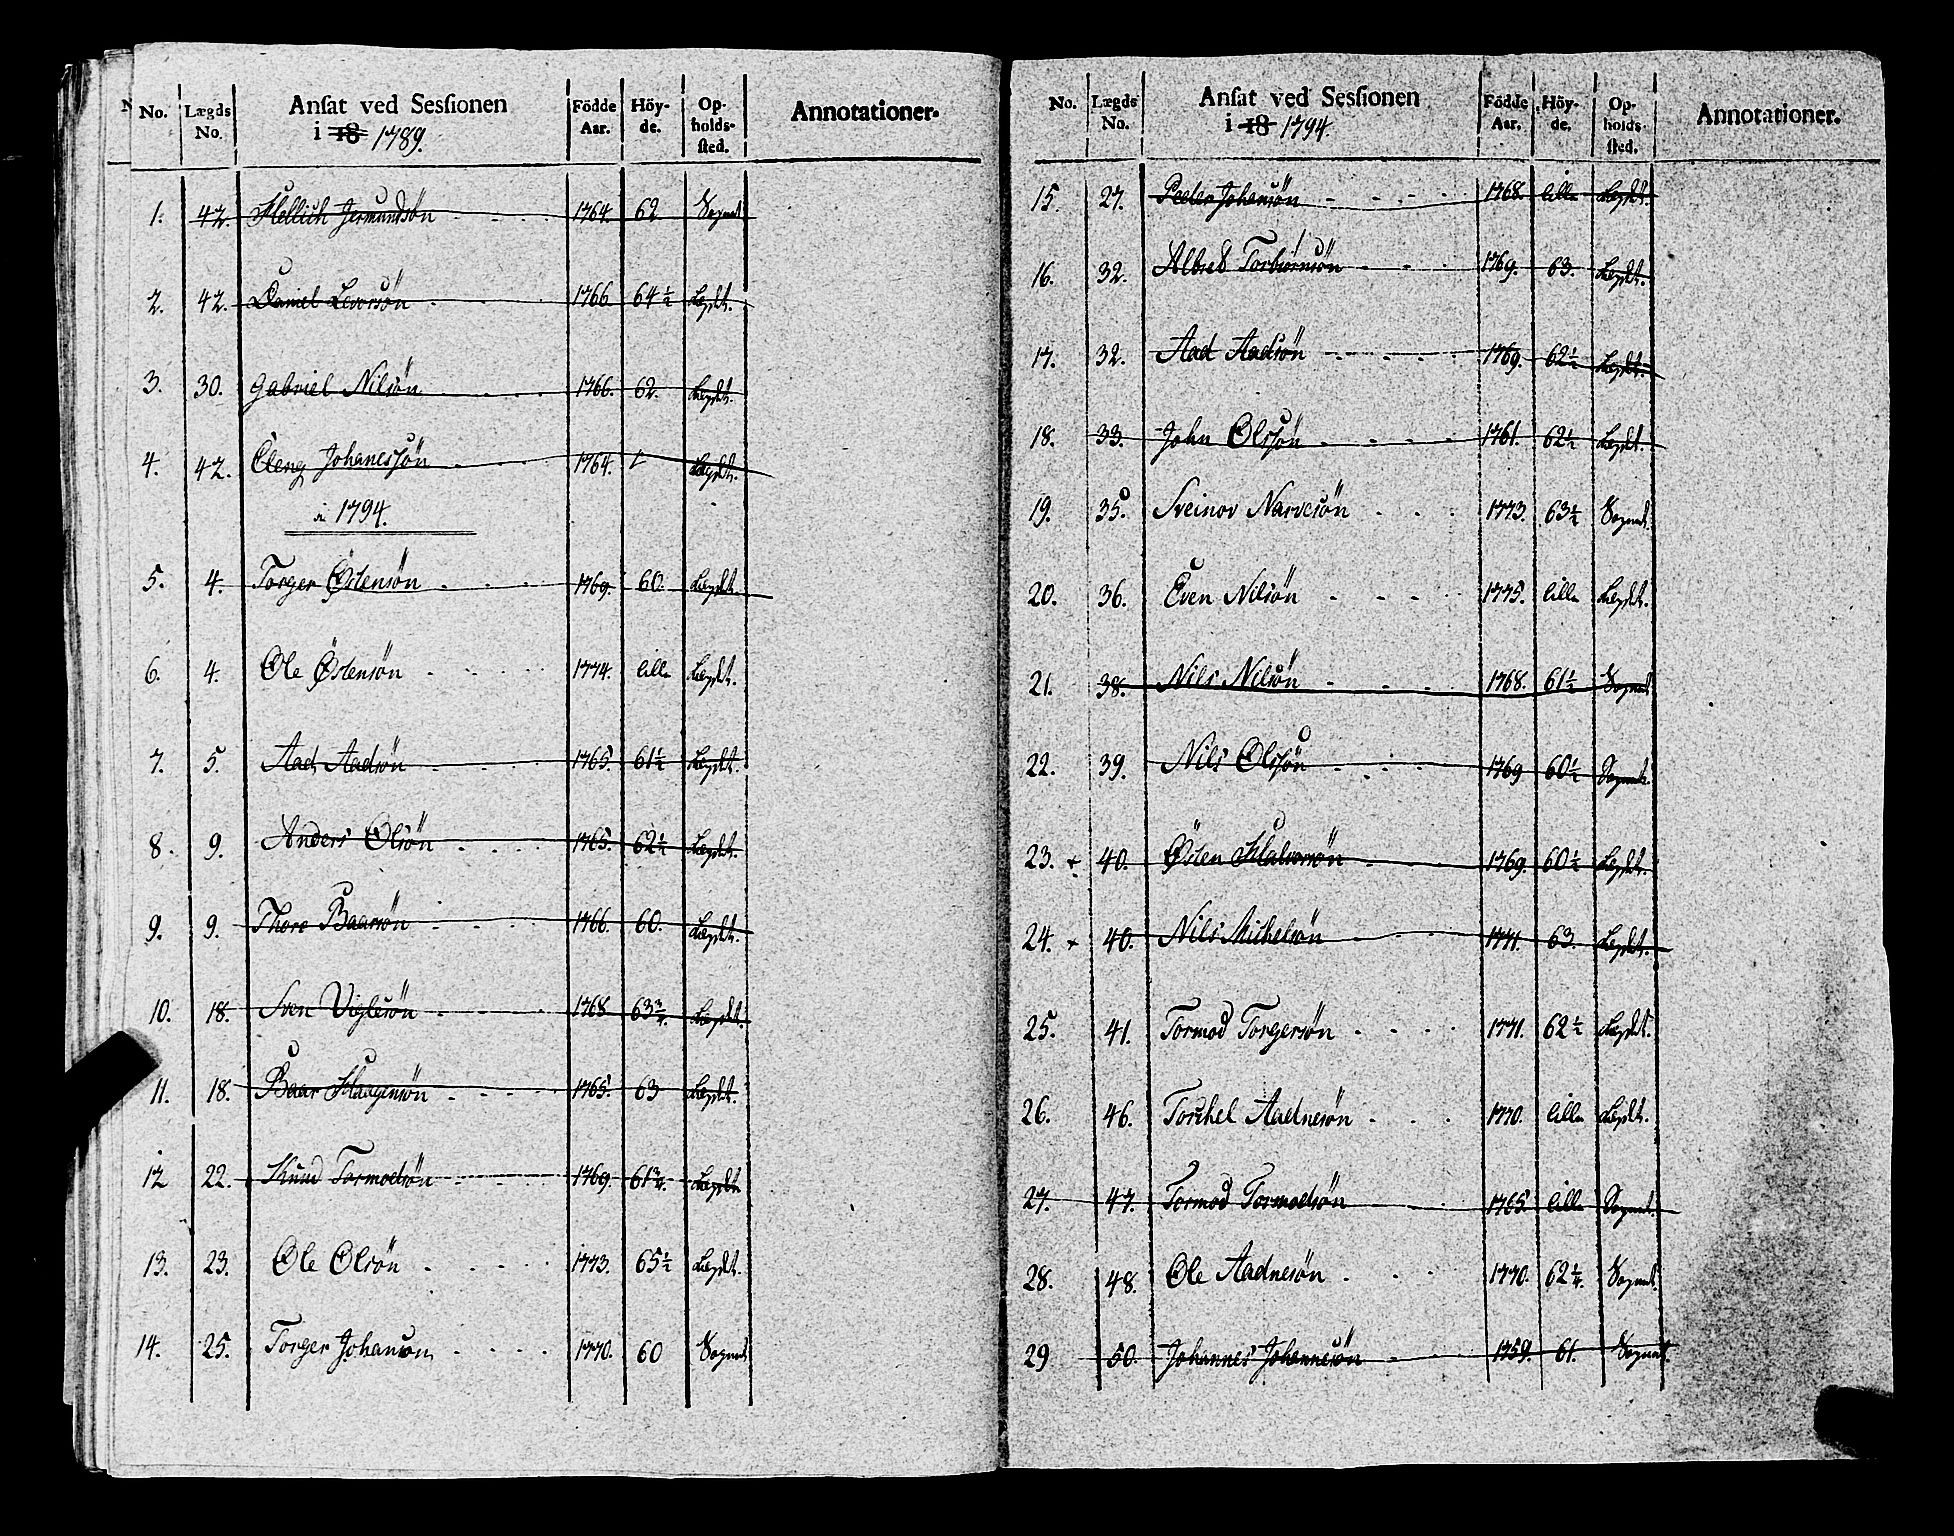 No. Lægds No. Ansat ved Sessionen i 18 1789. Födde Aar. Höyde. Opholdssted. Annotationer.
1. 42. Kellich Jermundsön 1764. 62 Sognet
2. 42. Daniel Leversön 1766 64½ Lægdet.
3. 30. Gabriel Nilsön 1766. 62. Lægdet.
4. 42. Eleng Johanessön 1764. Lægdet.
i 1794.
5. 4. Torger Östensön 1769. 60. Lægdet.
6. 4. Ole Östensön 1774. lille Lægdet.
7. 5. Aad Aadsön 1765. 61½ Lægdet.
8. 9. Anders Olsön 1765. 62½ Lægdet.
9. 9. Thore Baarsön 1766. 60. Lægdet.
10. 18. Sven Viglesön 1768 63¾. Lægdet.
11. 18. Baar Haagensön 1765. 63 Lægdet.
12 22. Knud Tormodsön 1769. 61¾. Lægdet.
13. 23. Ole Olsön 1773. 65½ Lægdet.
14. 25. Torger Johanson 1770. 60 Sognet
No. Lægds No. Ansat ved Sessionen i 18 1794. Födde Aar. Höyde. Opholdssted. Annotationer.
15. 27. Peeter Johensön 1768. lille Lægdet.
16. 32. Albret Torbiörnsön 1769. 63. Lægdet.
17. 32. Aad Aadsön 1769. 62½ Lægdet.
18. 33. John Olssön 1761. 62½ Lægdet.
19. 35. Sveinov Narvesön 1773. 63½ Sognet.
20. 36. Even Nilsön 1775. lille Lægdet.
21. 38. Nils Nilsön 1768. 61½ Sognet
22. 39. Nils Olssön 1769 60½ Sognet.
23. + 40. Östen Halvorsön 1769. 60½ Lægdet.
24. + 40. Nils Michelsön 1771. 63. Lægdet.
25. 41. Tormod Torgersön 1771. 62½ Lægdet
26. 46. Torchel Aadnesön 1770. lille Lægdet.
27. 47. Tormod Tormodsön 1765. lille Sognet.
28. 48. Ole Aadnesön 1770. 62¼. Sognet.
29 50. Johannes Johannesön 1759. 61. Sognet.